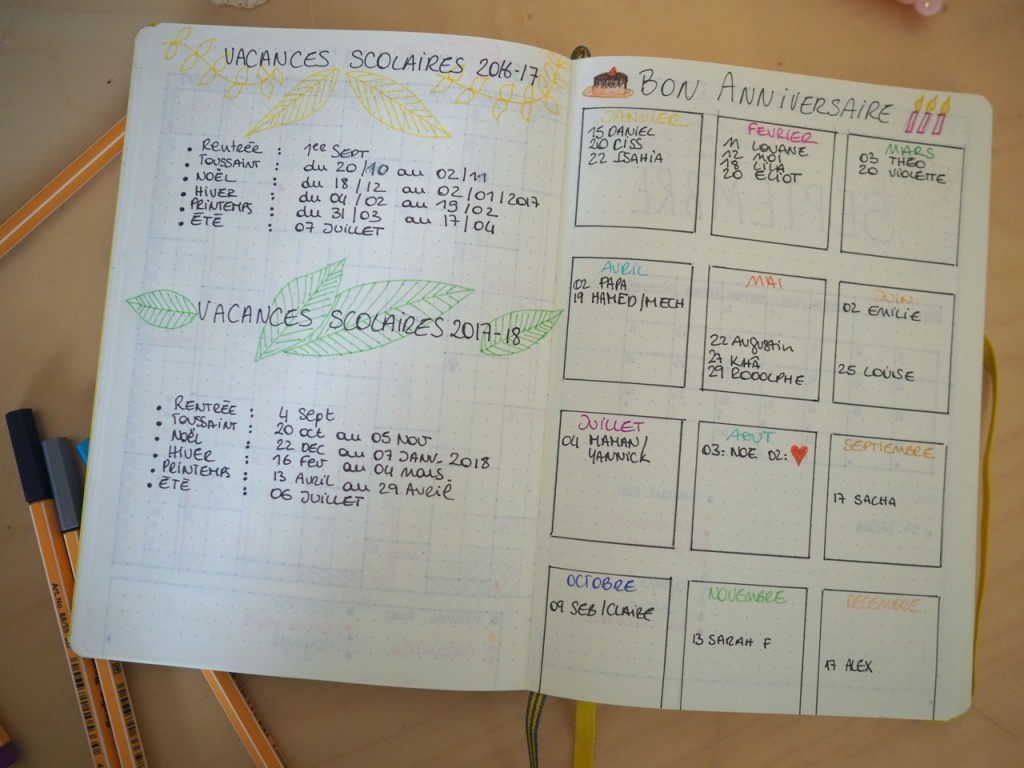 VACANCES SCOLAIRES 2016-17
• Rentrée : 1er SEPT
• TOUSSAINT : du 20/10 au 02/11
• NOËL : du 18/12 au 02/01/2017
• HIVER : du 04/02 au 19/02
• PRINTEMPS : du 31/03 au 17/04
• ÉTÉ : 07 JUILLET
VACANCES SCOLAIRES 2017-18
• RENTRÉE : 4 Sept
• TOUSSAINT : 20 oct au 05 NOV
• NOËL : 22 DEC au 07 JANV. 2018
• HIVER : 16 FEV au 04 mars.
• PRINTEMPS : 13 AVRIL au 29 AVRIL
• ÉTÉ : 06 JUILLET
BON ANNIVERSAIRE
JANVIER
15 DANIEL
20 CISS
22 ISAHIA
FEVRIER
11 LOUANE
12 MOI
18 LILA
20 ELIOT
MARS
03 THÉO
20 VIOLETTE
AVRIL
02 PAPA
19 HAMED/MECH
MAI
22 AUGUSTIN
27 KHÂ
29 RODOLPHE
JUIN
02 EMILIE
25 LOUISE
JUILLET
04 MAMAN/
YANNICK
AOUT
03: NOE 02: ♥
SEPTEMBRE
17 SACHA
OCTOBRE
09 SEB/CLAIRE
NOVEMBRE
13 SARAH F
DECEMBRE
17 ALEX